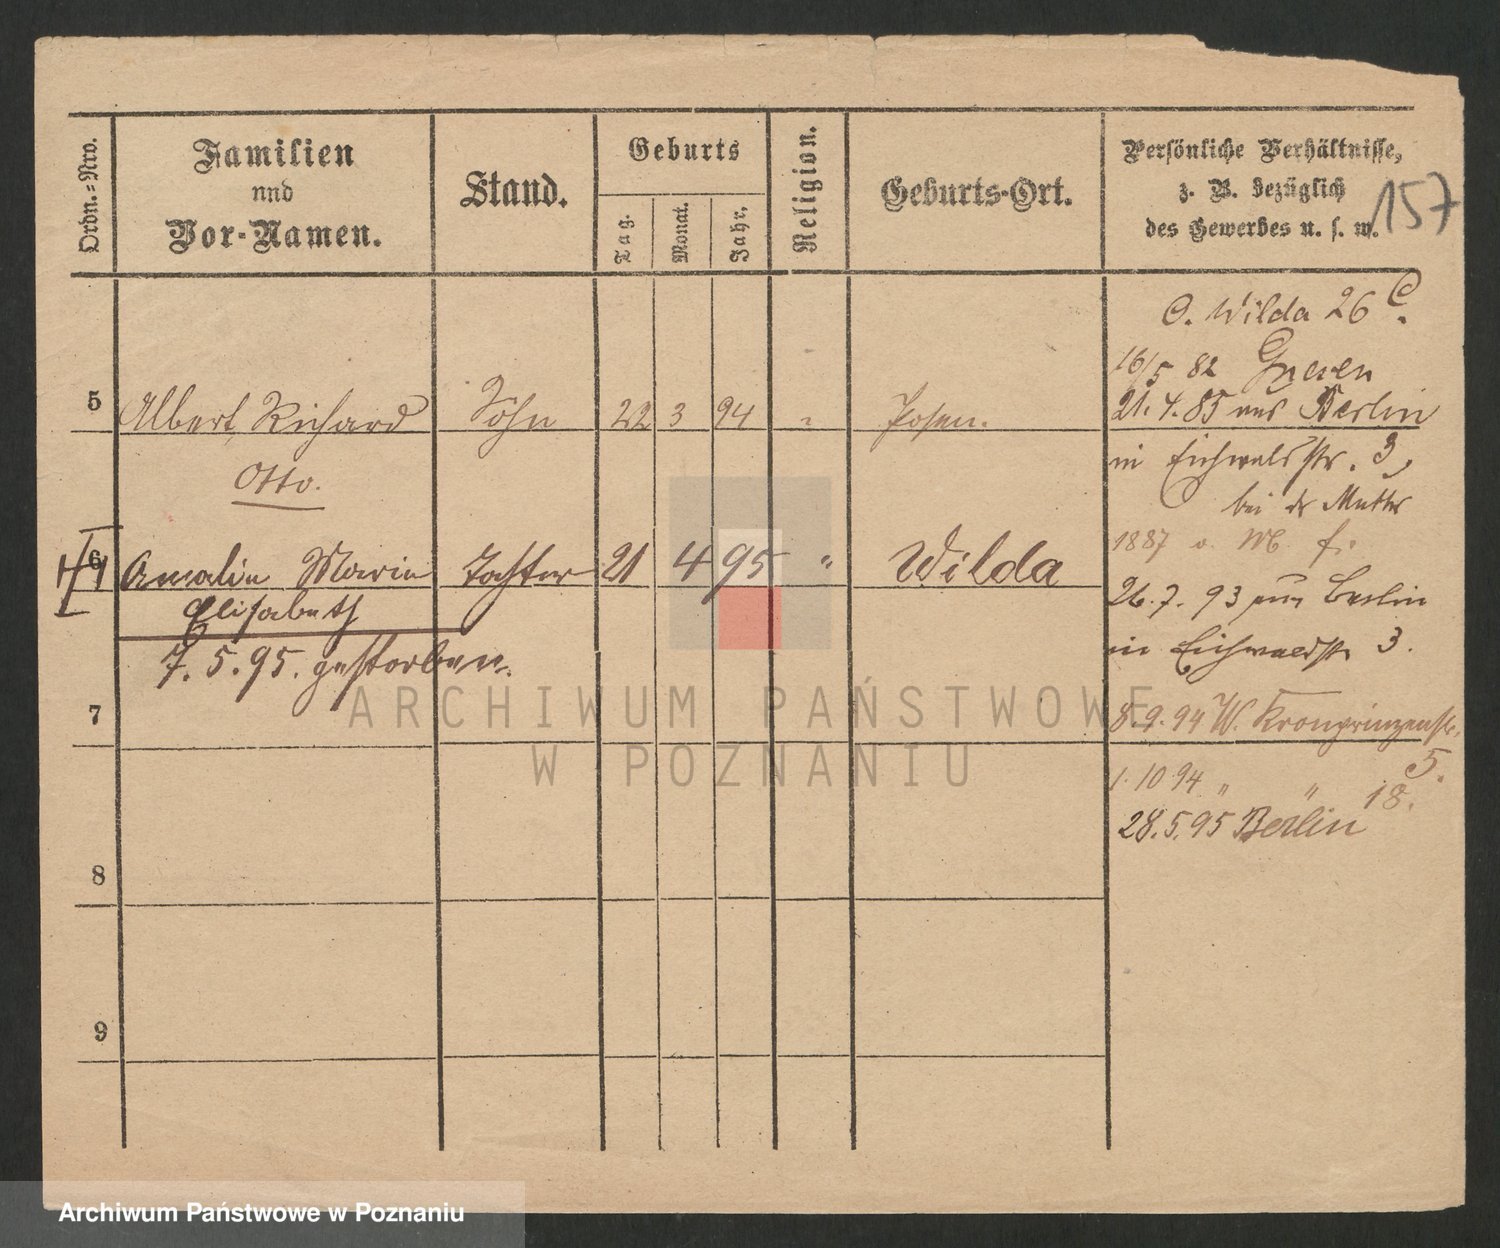 Ordn.=Nro.
Familien
und
Vor-Namen.
Stand.
Geburts
Tag.
Monat.
Jahr.
Religion.
Geburts-Ort.
Persönliche Verhältnisse,
z. B. bezüglich
des Gewerbes u. s. w.
157
O. Wilda 26 C.
16/5 82 Gnesen
5 Albert Richard Sohn 22 3 94 " Posen.
21.4.85 aus Berlin
Otto.
in Eichwaldstr. 3,
bei dr Mutter
1887 o. M f.
6 Amalie Marie Tochter 21 4 95 " Wilda
Elisabeth
26.7.93 aus Berlin
7.5.95. gestorben.
in Eichwaldstr 3.
7
8.9.94 W. Kronprinzenstr.
5.
1.10 94 " " 18.
28.5.95 Berlin
8
9
ARCHIWUM PAŃSTWOWE
W POZNANIU
Archiwum Państwowe w Poznaniu